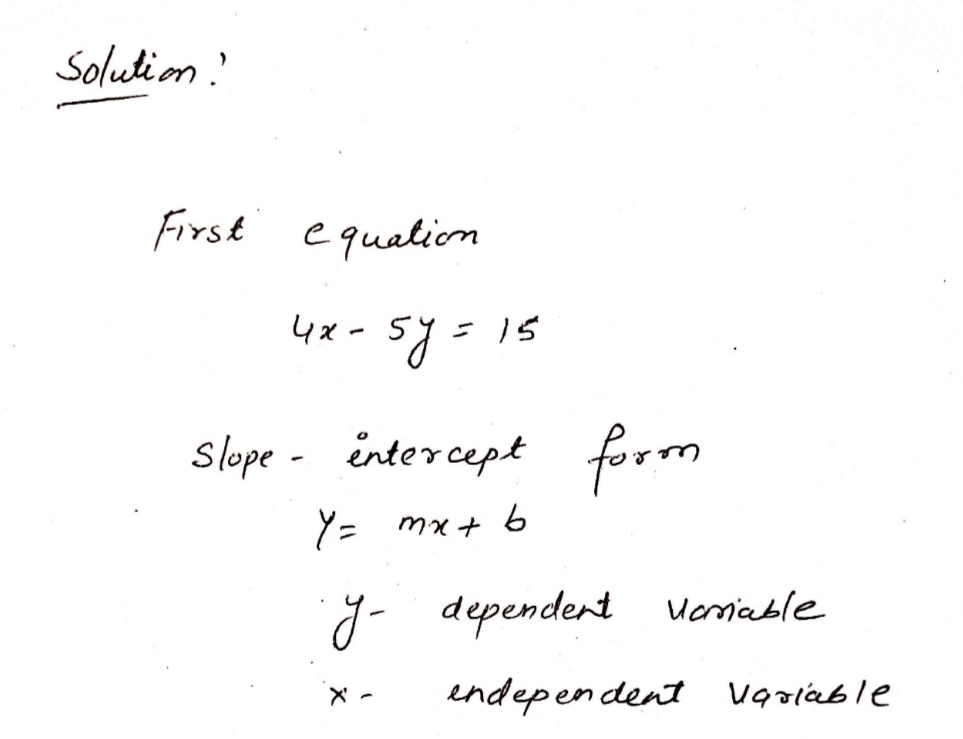 Solution:
First equation
4x - 5y = 15
Slope - intercept form
Y = mx + b
y - dependent variable
x - independent variable